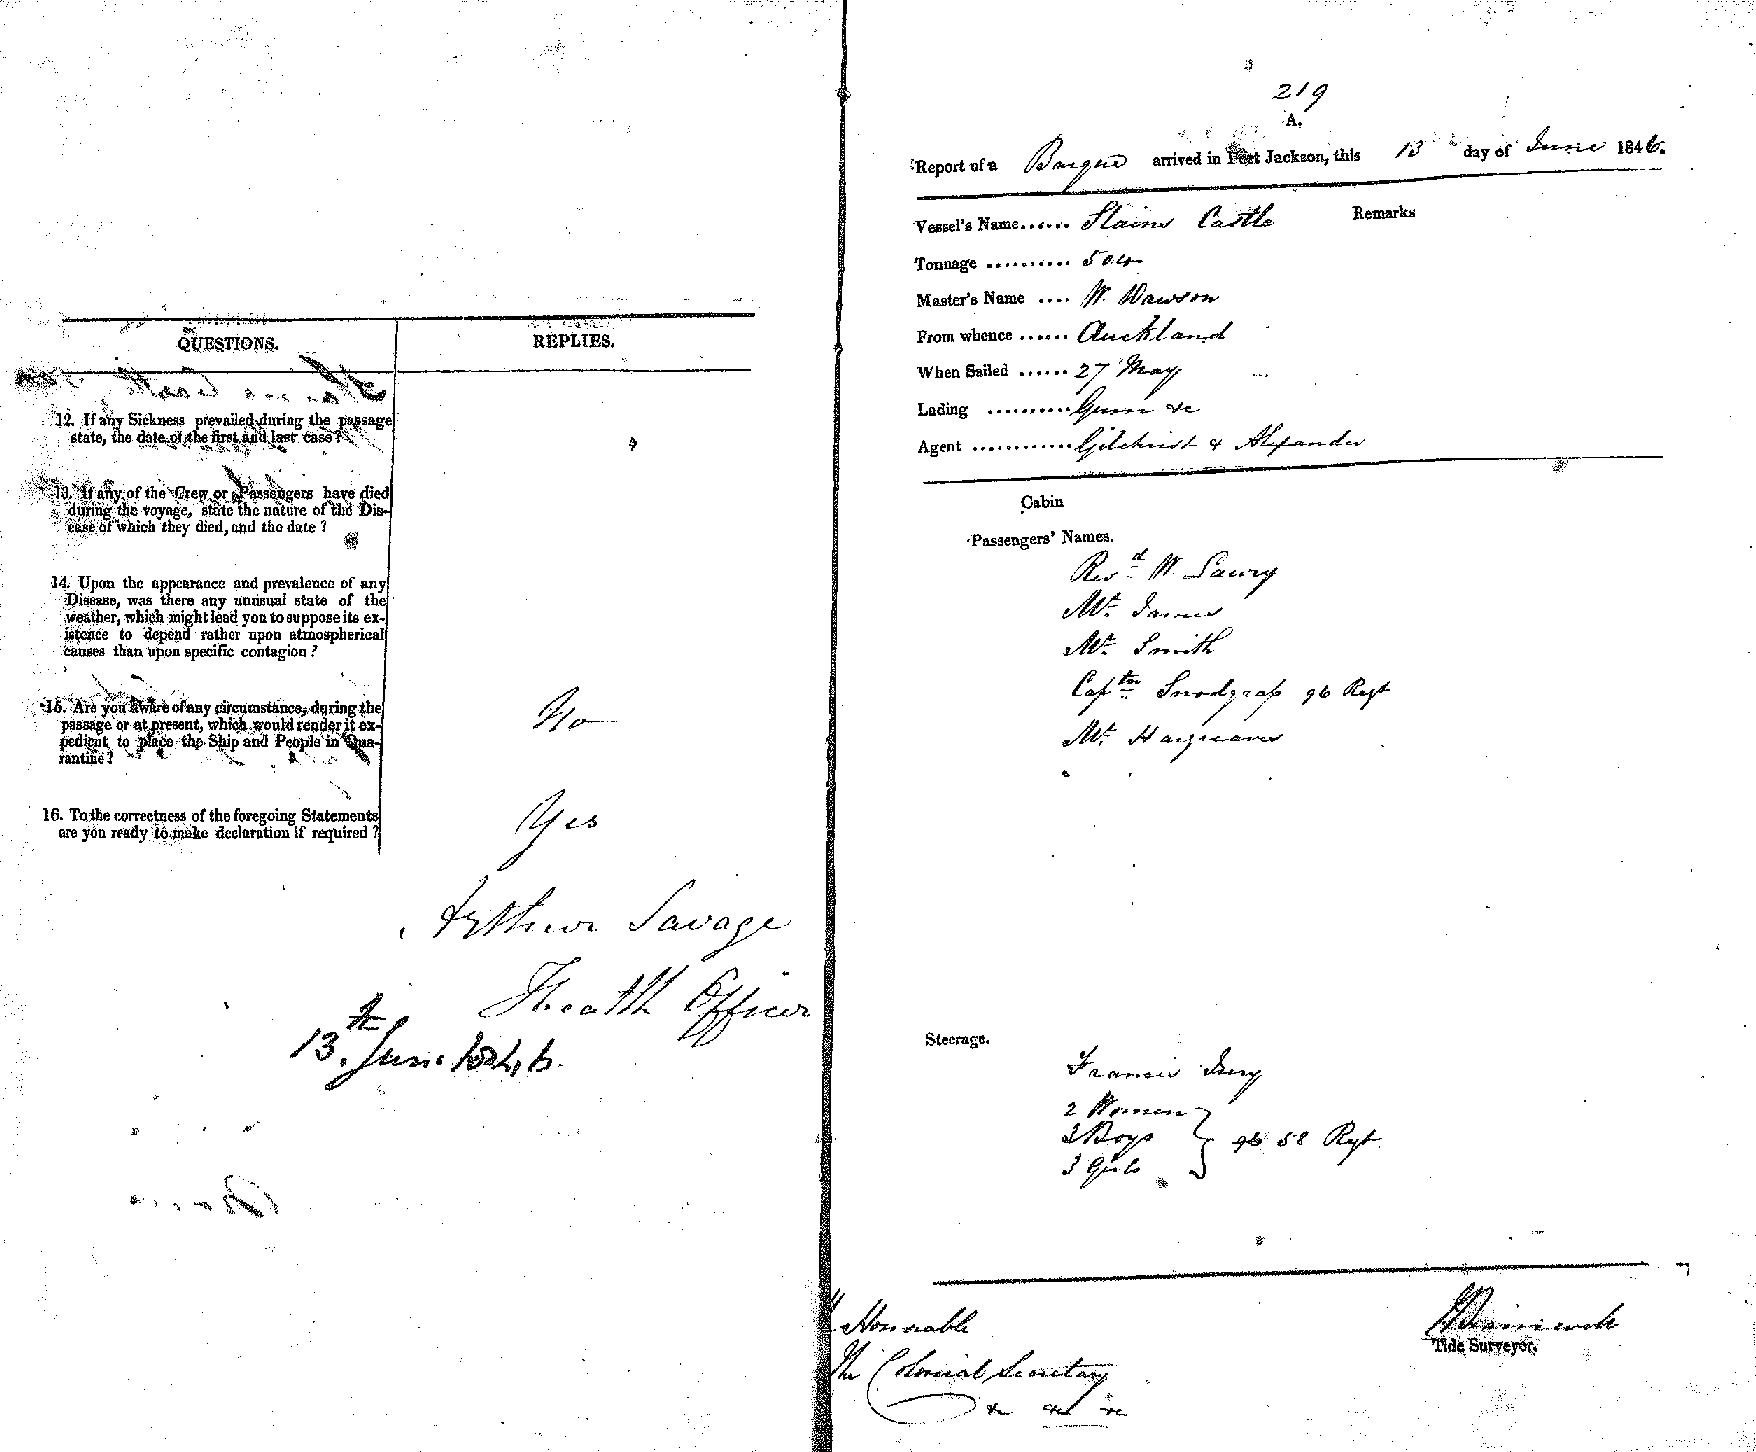 QUESTIONS. REPLIES.
12. If any Sickness prevailed during the passage
state, the date of the first and last case?
13. If any of the Crew or Passengers have died
during the voyage, state the nature of the Dis-
ease of which they died, and the date?
14. Upon the appearance and prevalence of any
Disease, was there any unusual state of the
weather, which might lead you to suppose its ex-
istence to depend rather upon atmospherical
causes than upon specific contagion?
15. Are you aware of any circumstance, during the
passage or at present, which would render it ex-
pedient to place the Ship and People in Qua-
rantine?
No
16. To the correctness of the foregoing Statements
are you ready to make declaration if required?
Yes
Arthur Savage
Health Officer
13th June 1846.
219
A.
Report of a Barque arrived in Port Jackson, this 13 day of June 1846.
Vessel's Name...... Slains Castle Remarks
Tonnage .......... 504
Master's Name .... W. Dawson
From whence ...... Auckland
When Sailed ...... 27 May
Lading .......... Gum &c
Agent ............ Gilchrist & Alexander
Cabin
Passengers' Names.
Revd W. Lawry
Mr. James
Mr. Smith
Captn Snodgrass 96 Regt
Mr. Hargreaves
Steerage.
Francis
2 Women
3 Boys 96 58 Regt
3 Girls
Honorable
The Colonial Secretary
&c &c &c
Tide Surveyor.